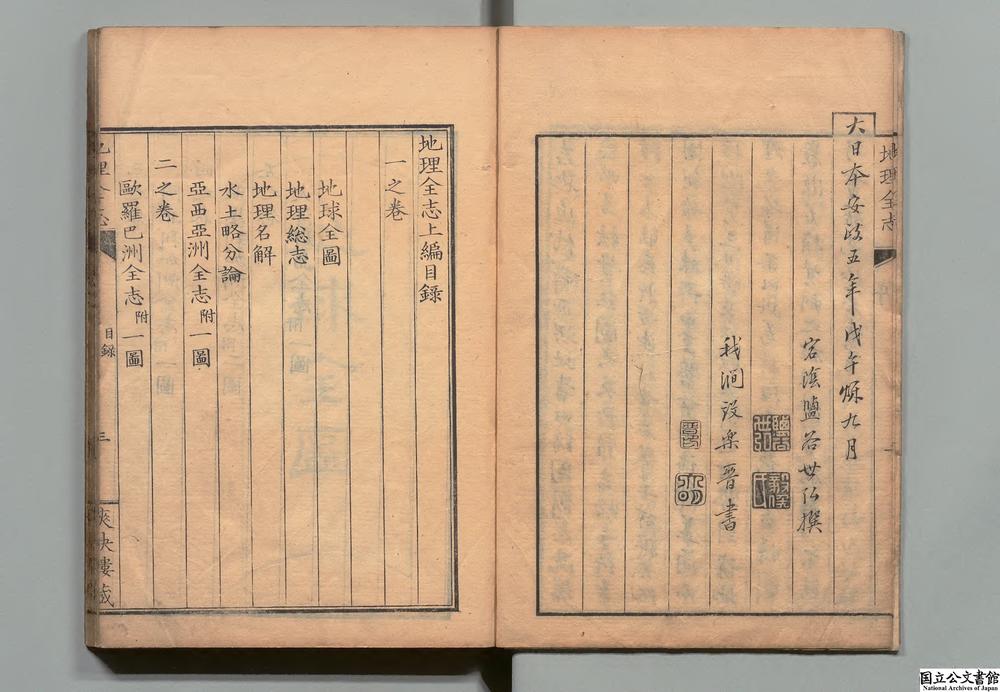 地理全志
大日本安政五年戊午穐九月
宕陰鹽谷世弘撰
我澗設楽晋書
地理全志上編目錄
一之卷
地球全圖
地理総志
地理名解
水土略分論
亞西亞洲全志附一圖
二之卷
歐羅巴洲全志附一圖
地理全志
目録
三
爽快樓蔵
国立公文書館
National Archives of Japan